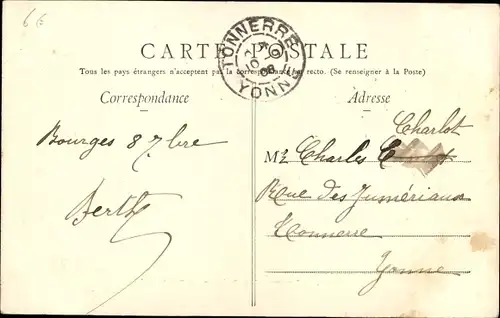 66
CARTE POSTALE
Tous les pays étrangers n'acceptent pas la correspondance au recto. (Se renseigner à la Poste)
TONNERRE
YONNE
Correspondance
Adresse
Bourges 8 7bre
Berthe
Charlot
Mr Charles
Rue des Jumériaux
Tonnerre
Yonne